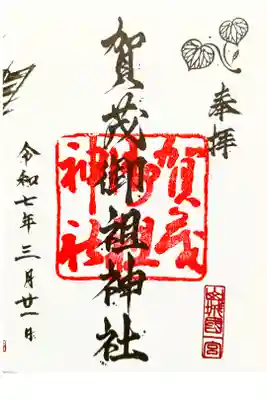 奉拝
賀茂御祖神社
令和七年三月廿一日
賀茂
御祖
神社
山城国
一宮